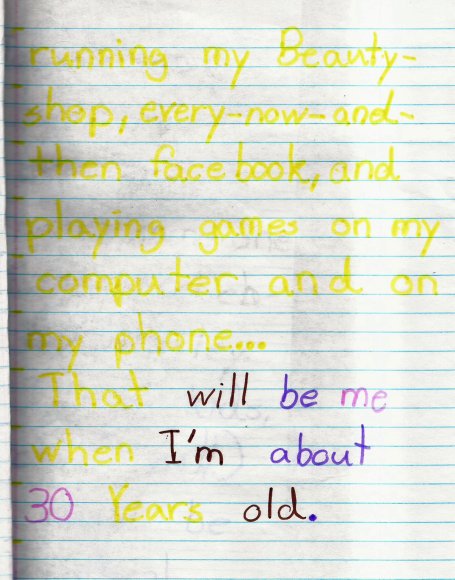 running my Beauty-
shop, every-now-and-
then face book, and
playing games on my
computer and on
my phone...
That will be me
when I'm about
30 Years old.